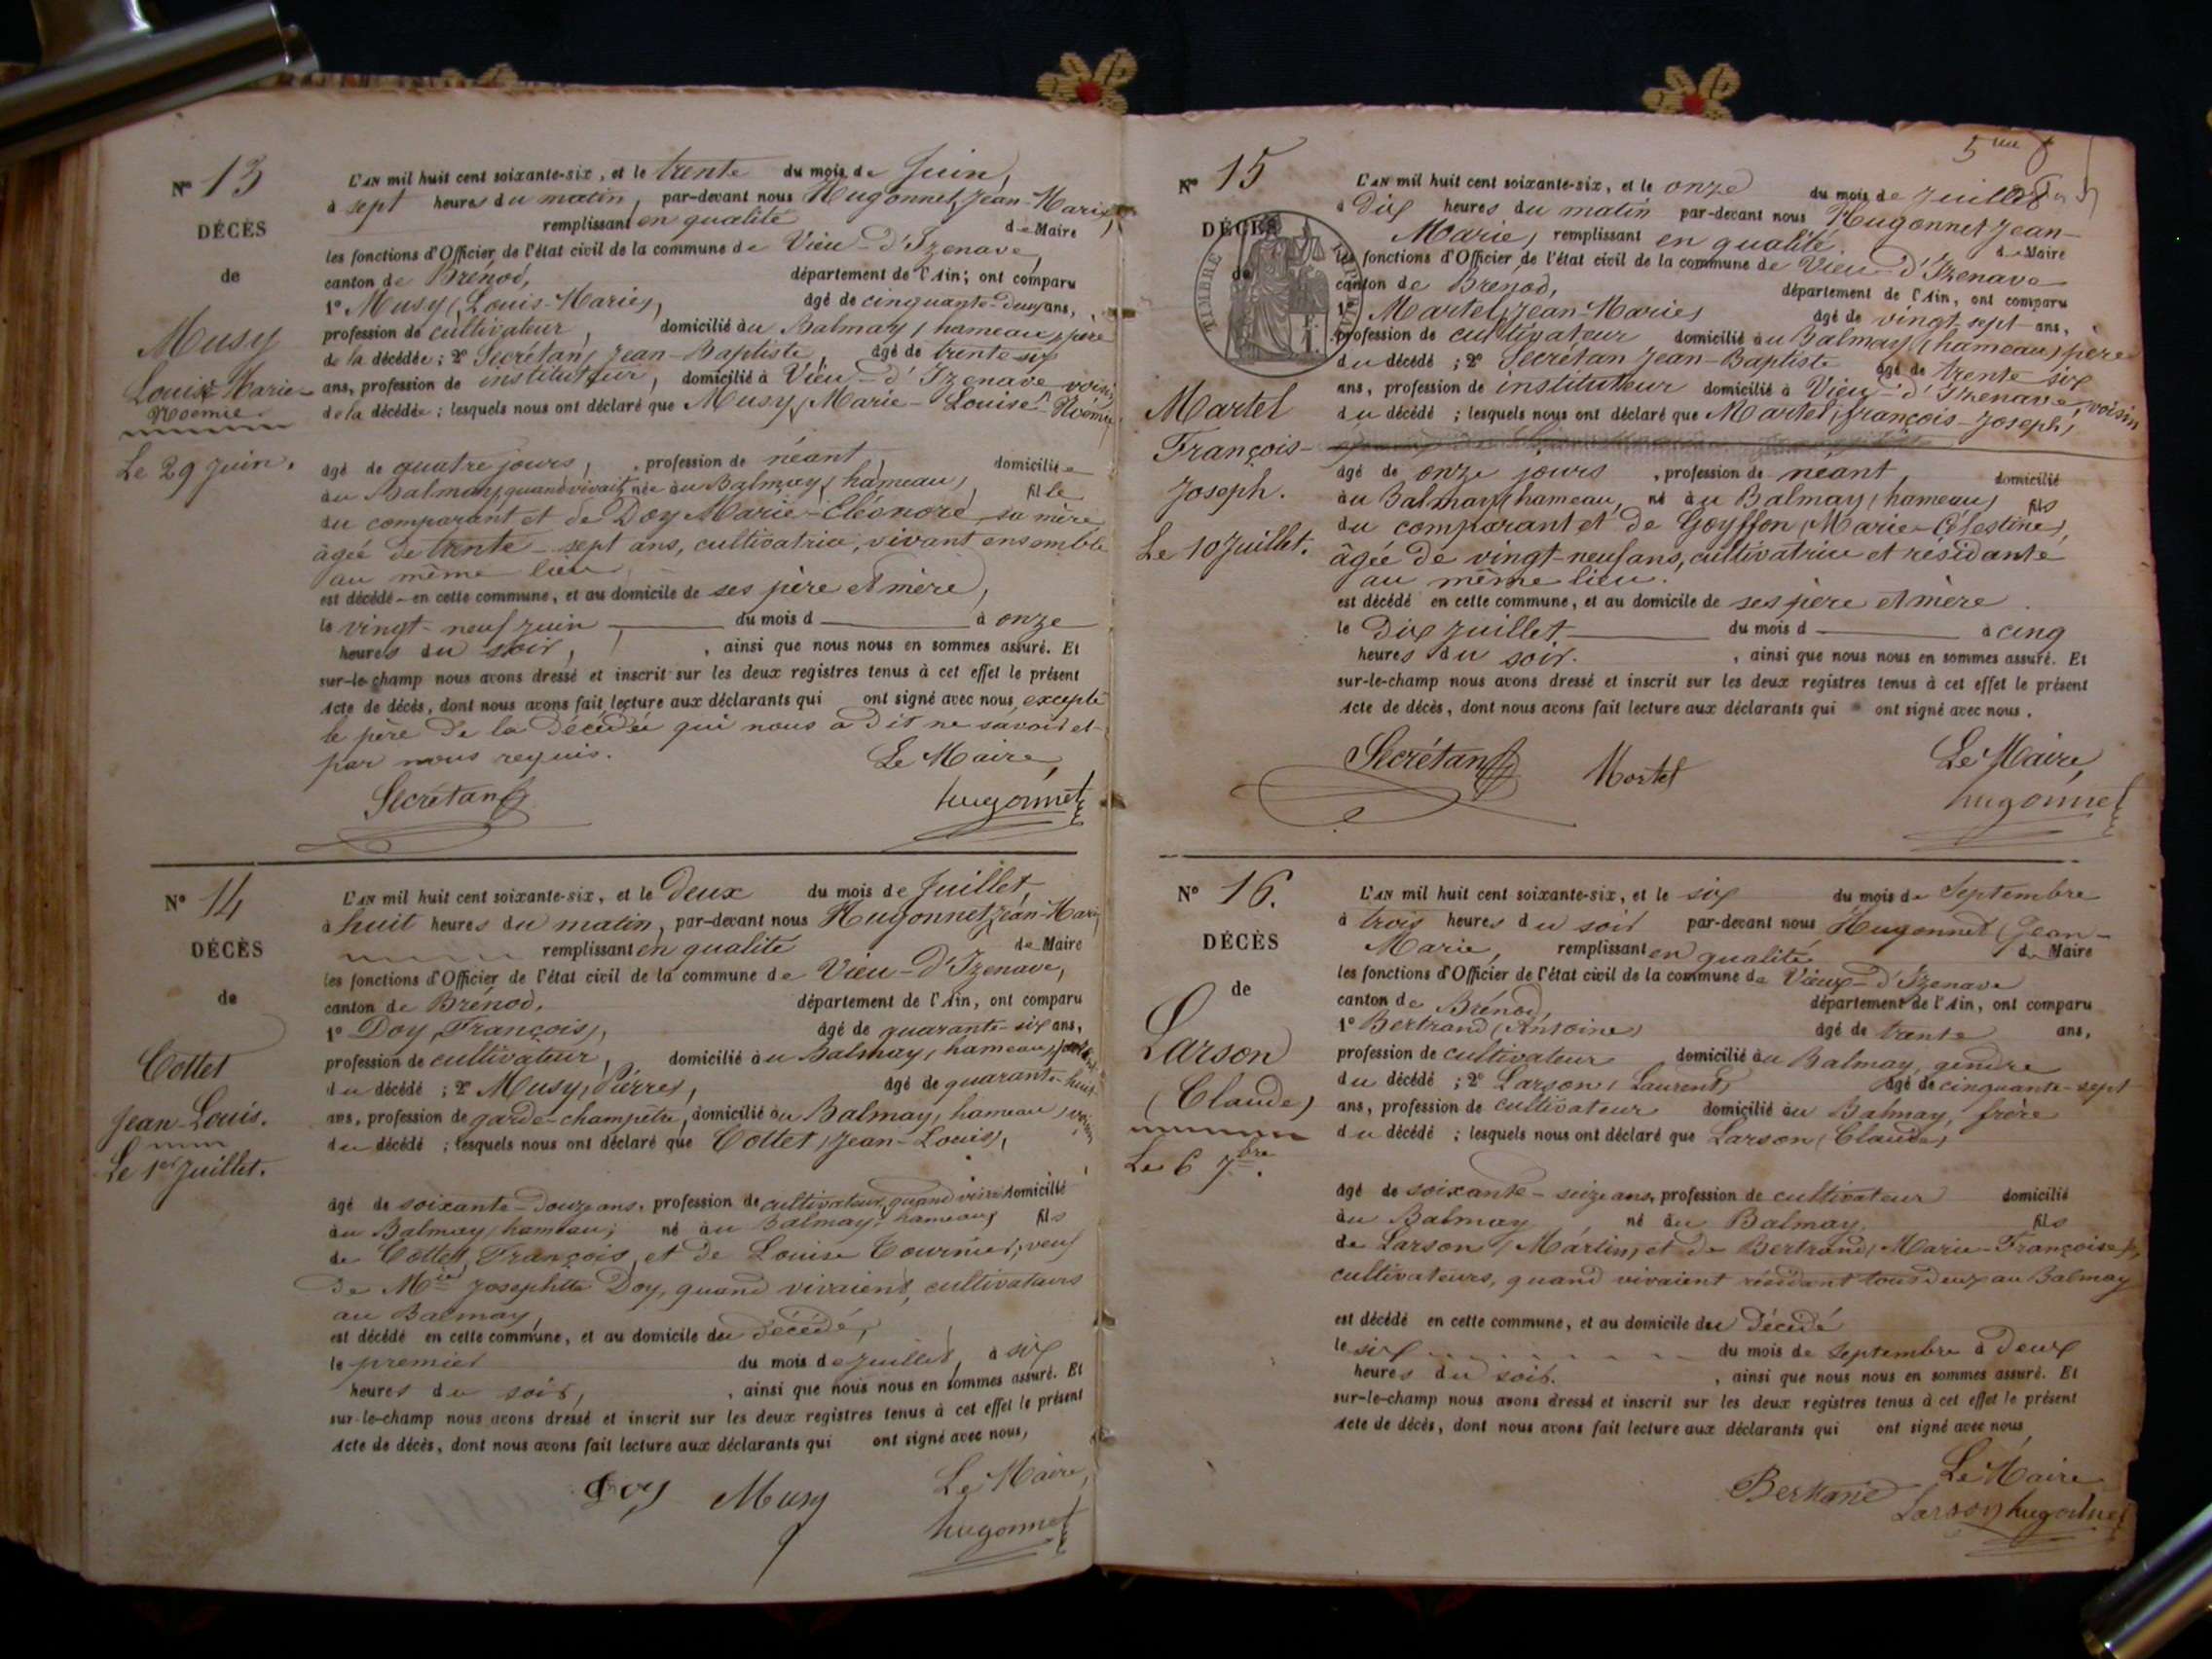 N° 13
DÉCÈS
de
Musy
Louise Marie-
Noémie.
Le 29 Juin.
L'AN mil huit cent soixante-six, et le trente du mois de Juin,
à sept heures du matin, par-devant nous Hugonnet, Jean-Marie,
remplissant en qualité de Maire
les fonctions d'Officier de l'état civil de la commune de Vieu-d'Izenave,
canton de Brénod, département de l'Ain; ont comparu
1° Musy (Louis-Marie), âgé de cinquante-deux ans,
profession de cultivateur, domicilié au Balmay, hameau, père
de la décédée; 2° Secrétan, Jean-Baptiste, âgé de trente six
ans, profession de instituteur, domicilié à Vieu-d'Izenave voisin
de la décédée; lesquels nous ont déclaré que Musy, Marie-Louise-Noémie
âgé de quatre jours, profession de néant, domicilié
au Balmay, quand vivait, née au Balmay (hameau), fille
du comparant et de Doy Marie-Eléonore sa mère
âgée de trente-sept ans, cultivatrice, vivant ensemble
au même lieu
est décédé en cette commune, et au domicile de ses père et mère,
le vingt-neuf juin du mois d à onze
heures du soir, , ainsi que nous nous en sommes assuré. Et
sur-le-champ nous avons dressé et inscrit sur les deux registres tenus à cet effet le présent
Acte de décès, dont nous avons fait lecture aux déclarants qui ont signé avec nous, excepté
le père de la décédée qui nous a dit ne savoir et
par nous requis. Le Maire,
Secrétan hugonnet
N° 14
DÉCÈS
de
Cottet
Jean-Louis.
Le 1er Juillet.
L'AN mil huit cent soixante-six, et le deux du mois de Juillet,
à huit heures du matin, par-devant nous Hugonnet, Jean-Marie
remplissant en qualité de Maire
les fonctions d'Officier de l'état civil de la commune de Vieu-d'Izenave,
canton de Brénod, département de l'Ain, ont comparu
1° Doy, François, âgé de quarante-six ans,
profession de cultivateur, domicilié au Balmay, hameau,
du décédé; 2° Musy, Pierre, âgé de quarante-huit
ans, profession de garde-champêtre, domicilié au Balmay, hameau, voisin
du décédé; lesquels nous ont déclaré que Cottet, Jean-Louis,
âgé de soixante-douze ans, profession de cultivateur, quand vivait domicilié
au Balmay (hameau; né au Balmay, hameau fils
de Cottet, François, et de Louise Tournier, veuf
de Mie Josephte Doy, quand vivaient, cultivateurs
au Balmay,
est décédé en cette commune, et au domicile du décédé,
le premier du mois de juillet, à six
heures du soir, , ainsi que nous nous en sommes assuré. Et
sur-le-champ nous avons dressé et inscrit sur les deux registres tenus à cet effet le présent
Acte de décès, dont nous avons fait lecture aux déclarants qui ont signé avec nous,
Le Maire,
Doy Musy hugonnet
5
N° 15
DÉCÈS
de
TIMBRE
Martel
François-
Joseph.
Le 10 Juillet.
L'AN mil huit cent soixante-six, et le onze du mois de Juillet
à Dix heures du matin par-devant nous Hugonnet Jean-
Marie, remplissant en qualité de Maire
les fonctions d'Officier de l'état civil de la commune de Vieu-d'Izenave
canton de Brénod, département de l'Ain, ont comparu
1° Martel, Jean-Marie, âgé de vingt-sept ans,
profession de cultivateur domicilié au Balmay (hameau) père
du décédé; 2° Secrétan Jean-Baptiste âgé de trente six
ans, profession de instituteur domicilié à Vieu-d'Izenave, voisin
du décédé; lesquels nous ont déclaré que Martel, françois-Joseph,
âgé de onze jours, profession de néant, domicilié
au Balmay (hameau, né au Balmay (hameau) fils
du comparant et de Goyffon (Marie-Célestine),
âgée de vingt-neuf ans, cultivatrice et résidante
au même lieu.
est décédé en cette commune, et au domicile de ses père et mère
le Dix juillet du mois d à cinq
heures du soir. , ainsi que nous nous en sommes assuré. Et
sur-le-champ nous avons dressé et inscrit sur les deux registres tenus à cet effet le présent
Acte de décès, dont nous avons fait lecture aux déclarants qui ont signé avec nous.
Le Maire,
Secrétan Martel hugonnet
N° 16.
DÉCÈS
de
Larson
(Claude)
Le 6 7bre.
L'AN mil huit cent soixante-six, et le six du mois de Septembre
à trois heures du soir par-devant nous Hugonnet (Jean-
Marie, remplissant en qualité de Maire
les fonctions d'Officier de l'état civil de la commune de Vieux-d'Izenave
canton de Brénod, département de l'Ain, ont comparu
1° Bertrand (Antoine) âgé de trente ans,
profession de cultivateur domicilié au Balmay, gendre
du décédé; 2° Larson, Laurent, âgé de cinquante-sept
ans, profession de cultivateur domicilié au Balmay, frère
du décédé; lesquels nous ont déclaré que Larson (Claude)
âgé de soixante-seize ans, profession de cultivateur domicilié
au Balmay, né au Balmay, fils
de Larson (Martin) et de Bertrand, Marie-Françoise,
cultivateurs, quand vivaient résidant tous deux au Balmay
est décédé en cette commune, et au domicile du décédé
le six du mois de Septembre à deux
heures du soir. , ainsi que nous nous en sommes assuré. Et
sur-le-champ nous avons dressé et inscrit sur les deux registres tenus à cet effet le présent
Acte de décès, dont nous avons fait lecture aux déclarants qui ont signé avec nous
Le Maire
Bertrand Larson hugonnet